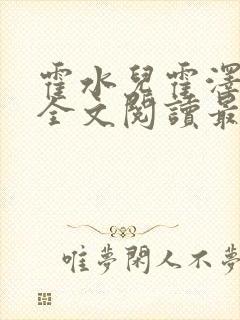 霍水兒霍澤
全文閱讀最
唯夢閑人不夢